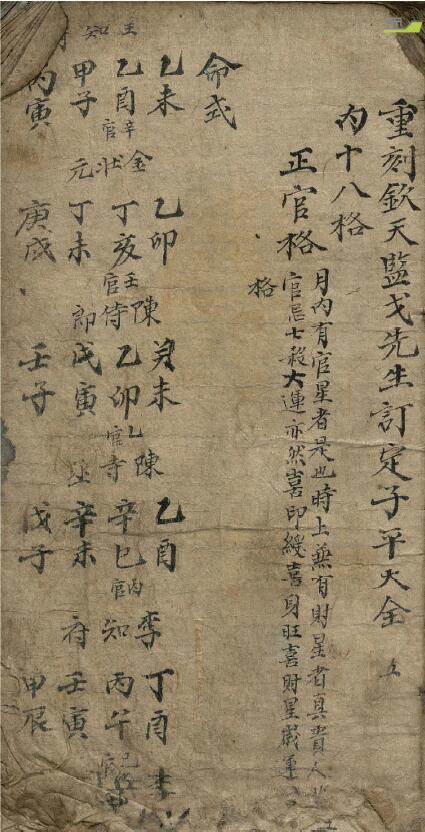 重刻欽天監戈先生訂定子平大全
內十八格
正官格
月內有官星者是也時上兼有財星者真貴人也
官忌七殺大運亦然喜印綬喜身旺喜財星歲運
格
命式
乙未 金 乙卯 陳 癸未 陳 乙酉 李 丁酉 李
乙酉 辛官 狀 丁亥 壬官 侍 乙卯 乙官 寺 辛巳 丙官 知 丙午
甲子 元 丁未 郎 戊寅 丞 辛未 府 壬寅
丙寅 庚戌 壬子 戊子 甲辰
王知府